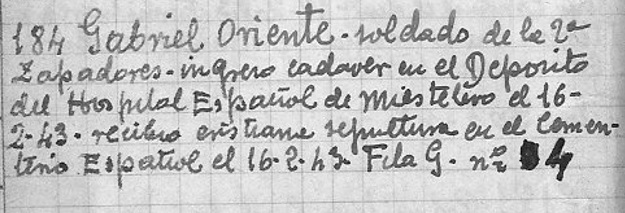 184 Gabriel Oriente - soldado de la 2ª
Zapadores - ingreso cadaver en el Deposito
del Hospital Español de Miestelevo el 16-
2-43 - recibio cristiana sepultura en el Cemen-
terio Español el 16-2-43- Fila G - nº 4